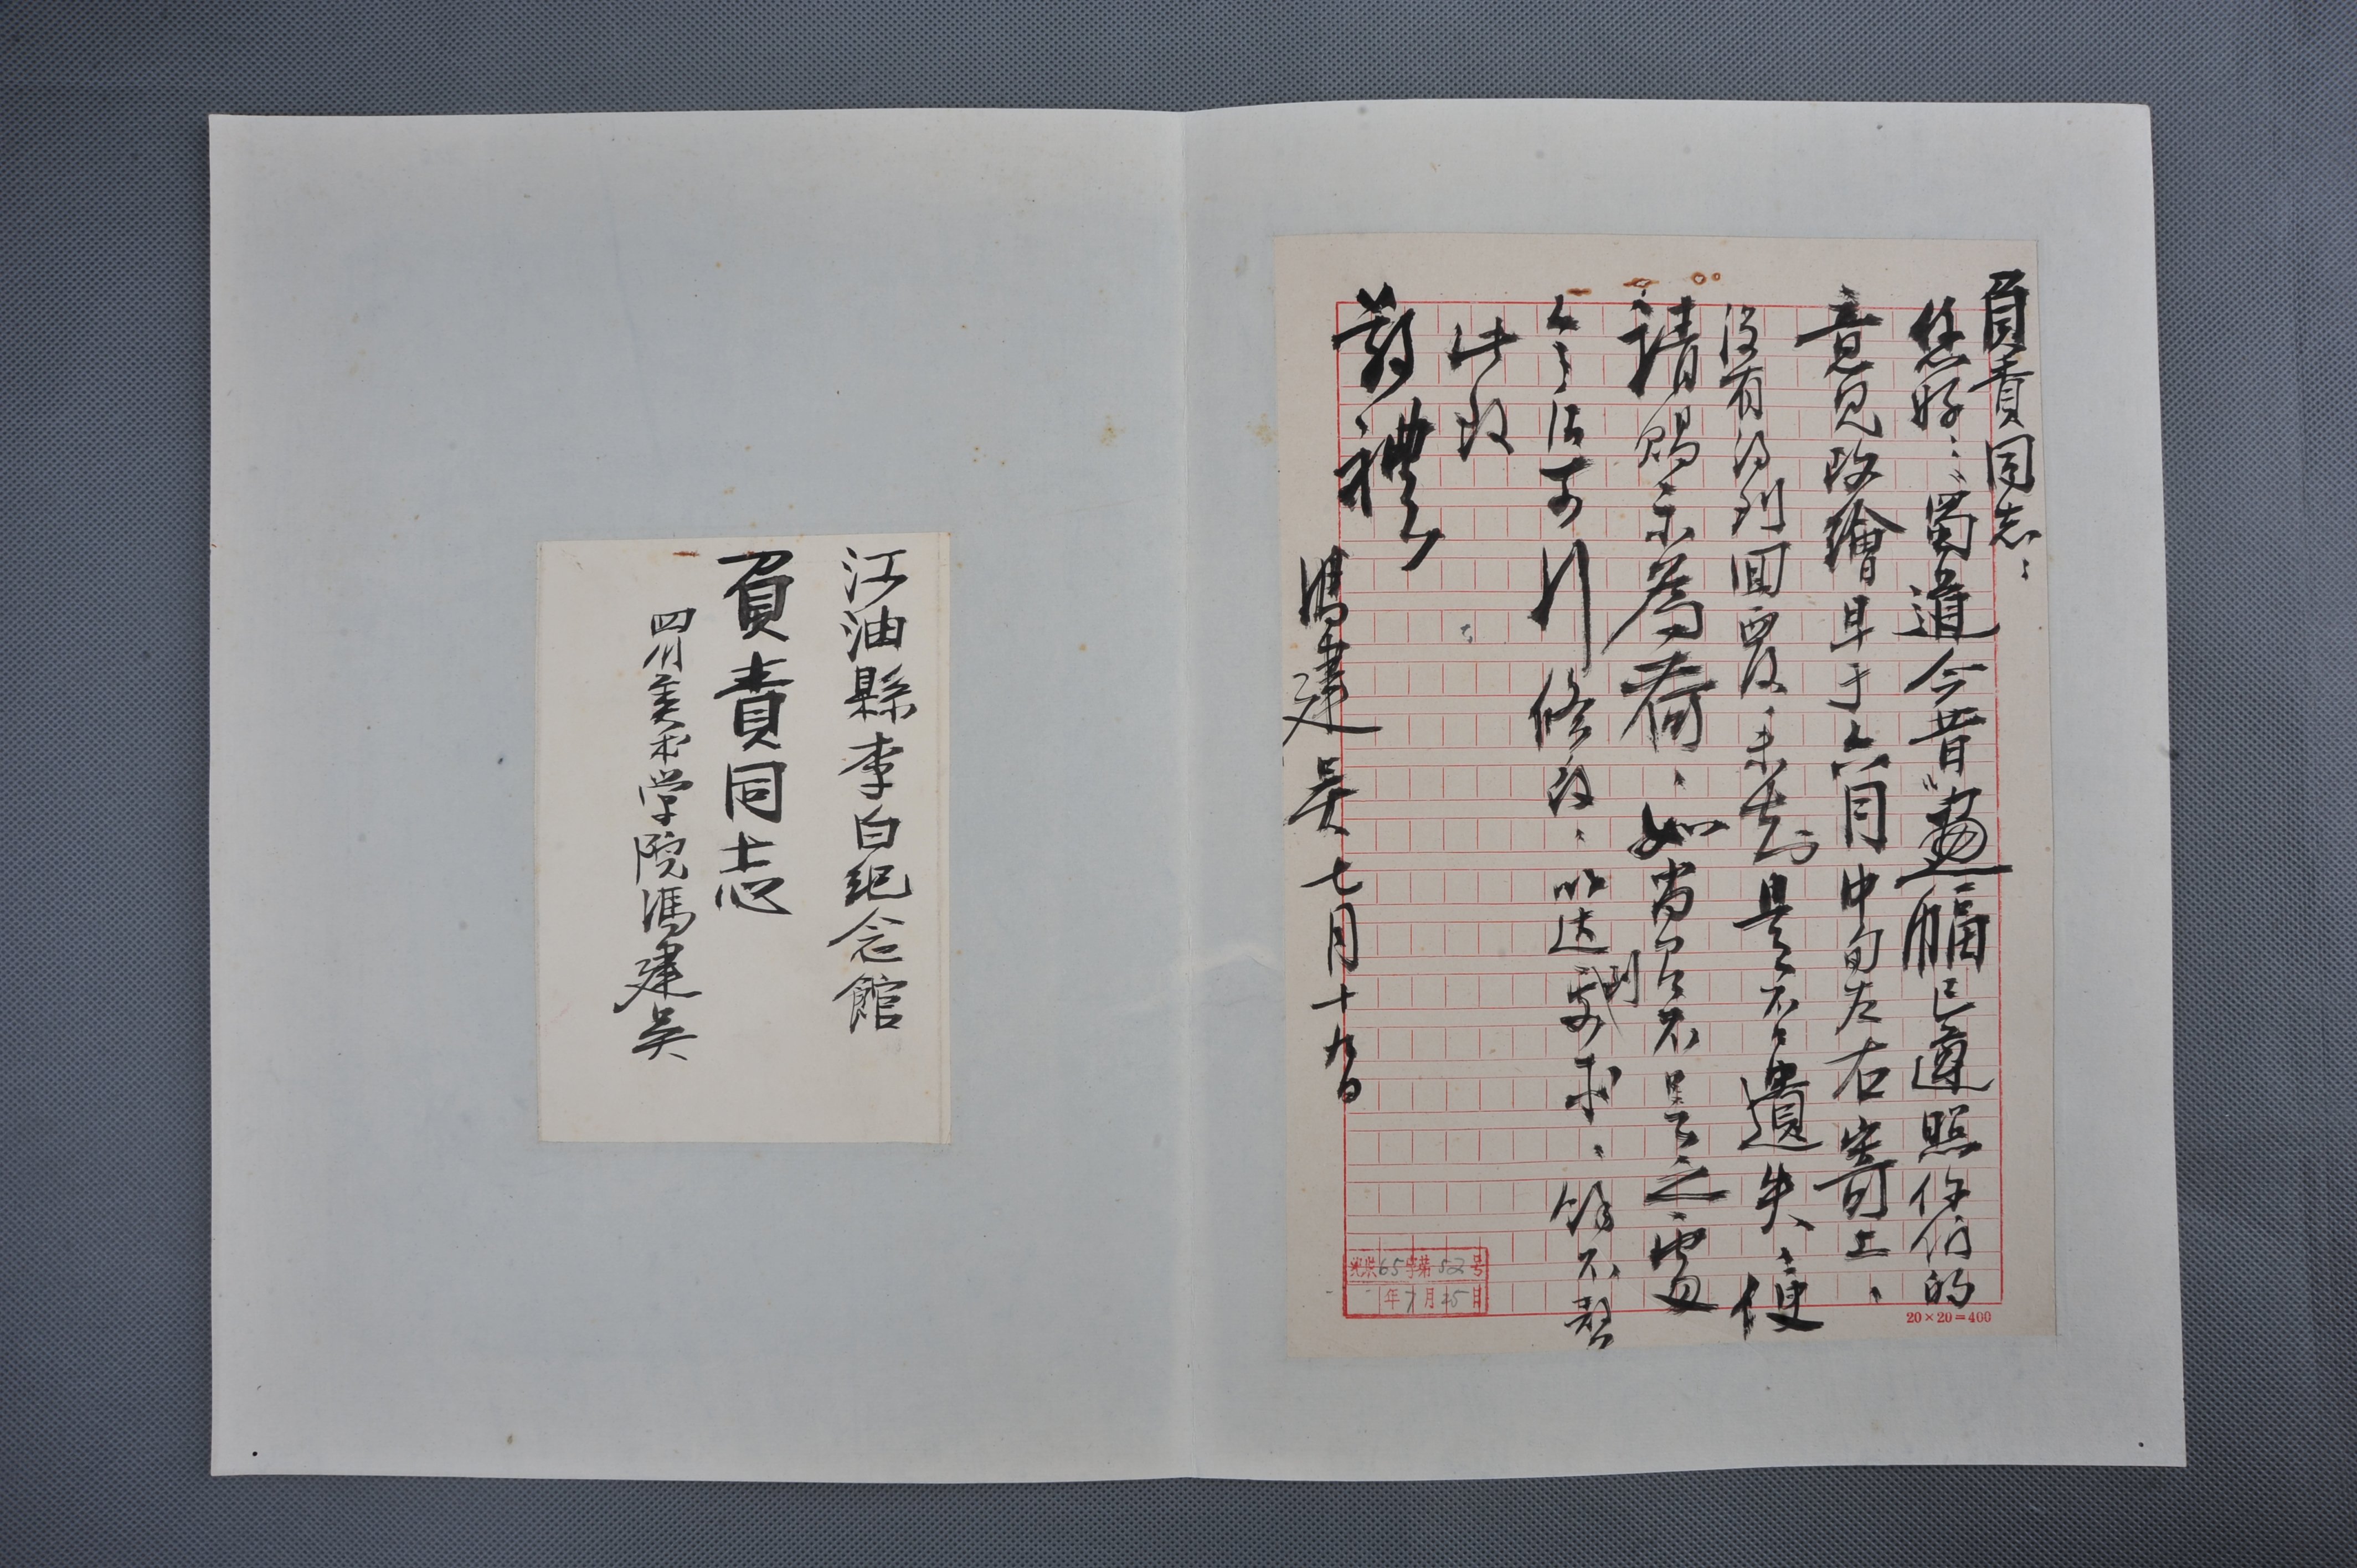 負責同志：
您好：“蜀道今昔”畫幅已遵照你們的
意見改繪且于六月中旬左右寄上、
沒有得到回覆、未知是不是遺失、便
請賜示為荷、如尚有不足之處
今后可行修改、以达到要求、餘不整
此致
敬禮
馮建吴 七月十九日
20×20=400
65 第 52 号
年 7 月 25 日
江油縣李白紀念館
負責同志
四川美术学院馮建吴